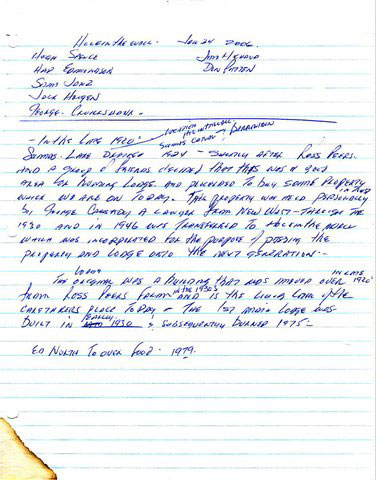 Hole in the Wall - Jan 24 2006
Hugh Spence Jim Hynaud
Hap Edmundson Don Patten
Stan Jonz
Jock Haugen
George Cruikshank.
- In the late 1920s Location Hole in the Wall Sumas Canal & Dyke
Sumas Lake Drained 1924 - Shortly after Ross Peers
and a group of friends decided that this was a good
area for hunting Lodge and decided to buy some property
which we are on today. This property was held personally in trust
by George Cassady a lawyer from New West - Through the
1930 and in 1946 was transferred to Hole in the Wall
which was incorporated for the purpose of passing the
property and Lodge onto the next generation -
Lodge
The original was a building that was moved over in late 1920s
from Ross Peers Farm in the 1930s and is the living area of the
caretakers place today - The 1st main Lodge was
built in early 1930 & subsequently burned 1975 -
Ed North to over food - 1979.